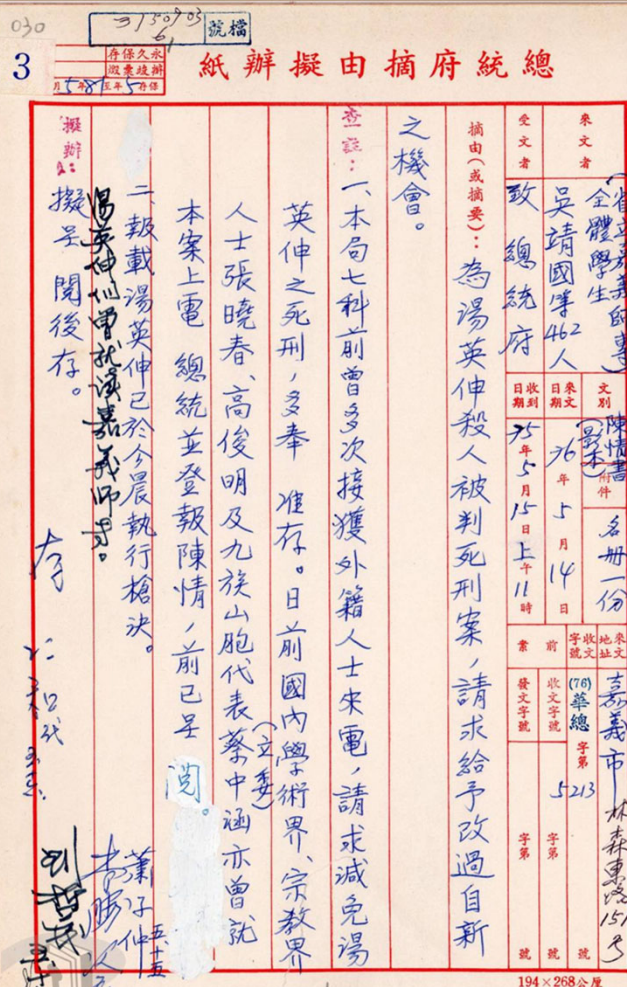 030
3150903
61
檔號
3
永久保存
辦竣彙繳
保存5年至81年5月
總統府摘由擬辦紙
來文者
(省立嘉義師專)
全體學生
吳靖國等462人
受文者
致 總統府
文別
陳情書
(影本)
附件
名冊一份
來文日期
76年5月14日
收到日期
75年5月15日上午11時
來文地址
嘉義市林森東路151號
收文字號
(76)華總 字第 5213 號
前案
收文字號 字第 號
發文字號 字第 號
摘由(或摘要):為湯英伸殺人被判死刑案,請求給予改過自新
之機會。
查註:一、本局七科前曾多次接獲外籍人士來電,請求減免湯
英伸之死刑,多奉 准存。日前國內學術界、宗教界
人士張曉春、高俊明及九族山胞代表蔡中涵(立委)亦曾就
本案上電 總統並登報陳情,前已呈 閱。
二、報載湯英伸已於今晨執行槍決。
湯英伸們曾就讀嘉義師專。
擬辦:
擬呈 閱後存。
存
蕭子仲
五.十五
194×268公厘